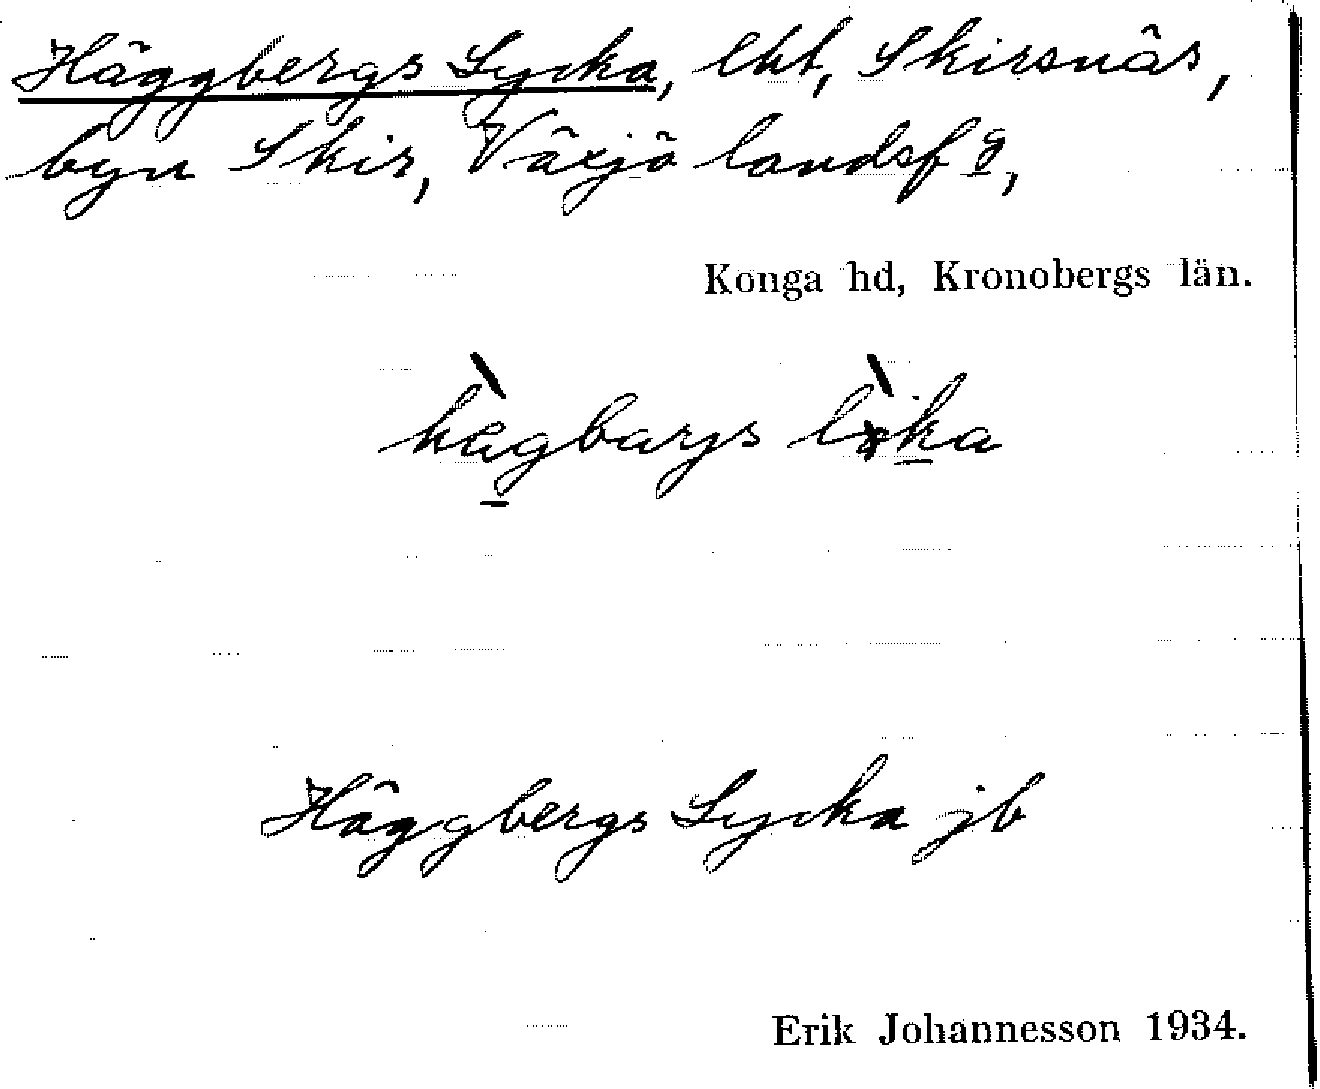 Häggbergs Lycka, lht, Skirsnäs,
byn Skir, Växjö landsf g,
Konga hd, Kronobergs län.
Häggbergs Lycka jb
Erik Johannesson 1934.